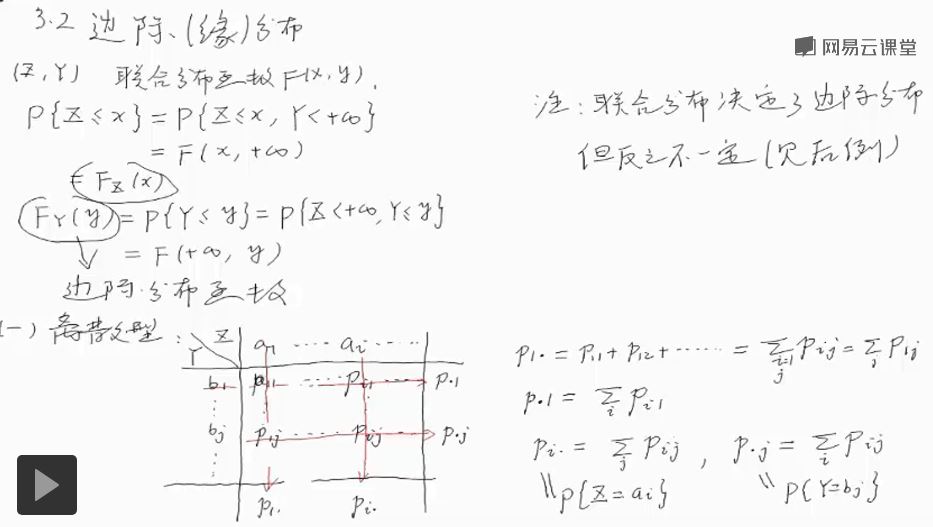 3.2 边际(缘)分布
网易云课堂
(X,Y) 联合分布函数F(x,y).
P{X≤x}=P{X≤x, Y<+∞}
=F(x,+∞)
=F_X(x)
F_Y(y)=P{Y≤y}=P{X<+∞,Y≤y}
=F(+∞, y)
边际分布函数
注:联合分布决定了边际分布
但反之不一定(见后例)
(一) 离散型:
Y X a₁ ····· aᵢ ·····
b₁ p₁₁ ····· pᵢ₁ p·₁
bⱼ p₁ⱼ ····· pᵢⱼ p·ⱼ
p₁. pᵢ.
p₁. = p₁₁+p₁₂+······ = Σⱼ p₁ⱼ
p·₁ = Σᵢ pᵢ₁
pᵢ. = Σⱼ pᵢⱼ , p·ⱼ = Σᵢ pᵢⱼ
P{X=aᵢ} P{Y=bⱼ}